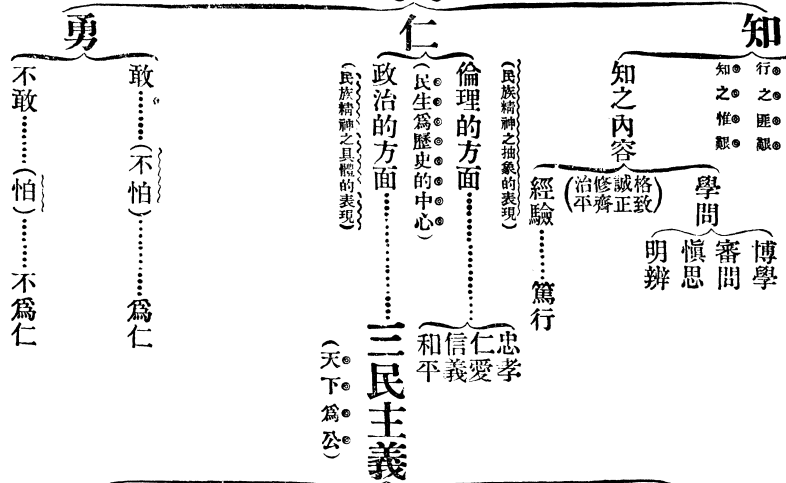 知
行之匪艱
知之惟艱
知之內容
學問
博學
審問
慎思
明辨
(格致
誠正
修齊
治平)
經驗……篤行
仁
(民族精神之抽象的表現)
倫理的方面……
忠孝
仁愛
信義
和平
(民生爲歷史的中心)
政治的方面……三民主義
(民族精神之具體的表現)
(天下爲公)
勇
敢……(不怕)……爲仁
不敢……(怕)……不爲仁